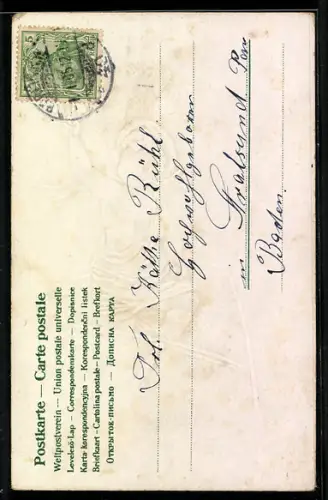 Postkarte — Carte postale
Weltpostverein — Union postale universelle
Levelező-Lap — Correspondenzkarte — Dopisnice
Karta korespondencyjna — Korespondenční lístek
Briefkaart — Cartolina postale — Postcard — Brefkort
ОТКРЫТОЕ ПИСЬМО — ДОПИСНА КАРТА
5 5
Frl. Käthe Rühl
Hochwohlgeboren
in Stralsund
Baden